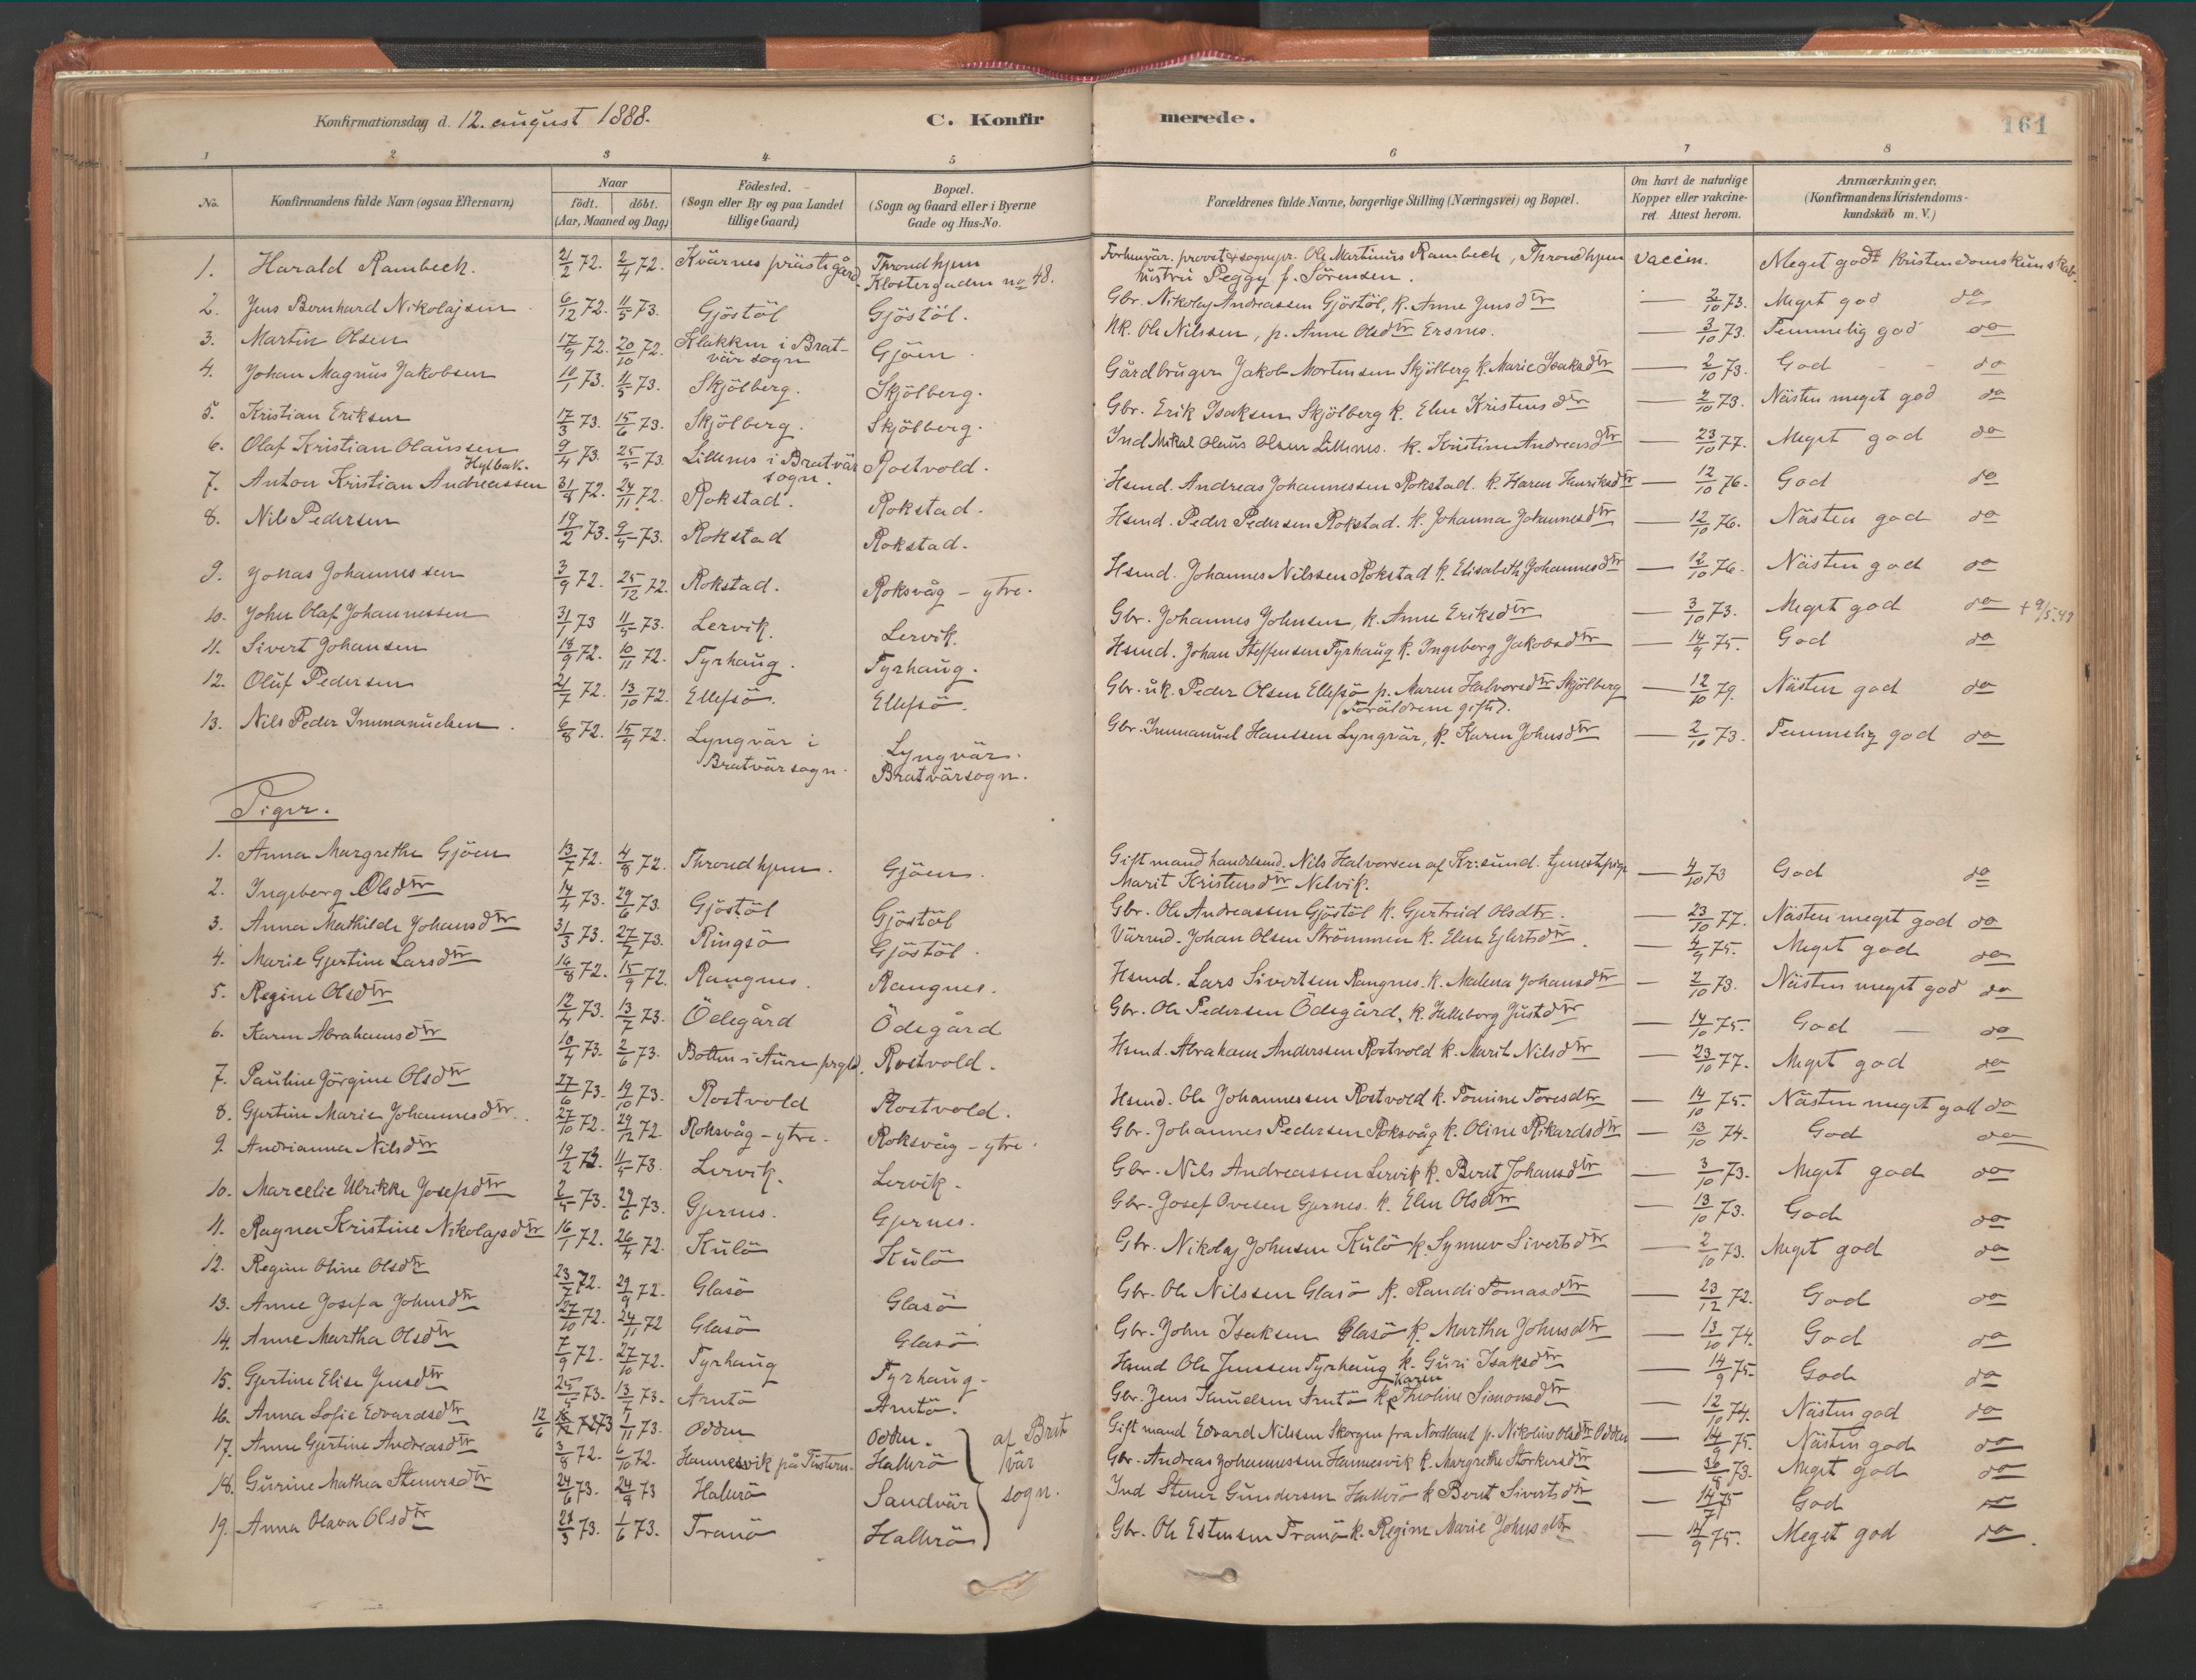 Konfirmationsdag d. 12. august 1888.
C. Konfirmerede.
161
1 2 3 4 5 6 7 8
No.
Konfirmandens fulde Navn (ogsaa Efternavn)
Naar
födt. döbt.
(Aar, Maaned og Dag)
Födested.
(Sogn eller By og paa Landet
tillige Gaard)
Bopæl.
(Sogn og Gaard eller i Byerne
Gade og Hus-No.
Forældrenes fulde Navne, borgerlige Stilling (Næringsvei) og Bopæl.
Om havt de naturlige
Kopper eller vakcine-
ret. Attest herom.
Anmærkninger.
(Konfirmandens Kristendoms-
kundskab m. V.)
1. Harald Rambech. 21/2 72. 2/4 72. Kvärnes prästigård. Throndhjem Klostergaden no 48. Forhenvär. provst & sognepr. Ole Martinus Rambech, Throndhjem hustru Peggy f. Sörensen. vaccin. Meget godt kristendomskundskab.
2. Jens Bernhard Nikolajsen 6/12 72. 11/5 73. Gjöstöl Gjöstöl. Gbr. Nikolay Andreassen Gjöstöl, k. Anne Jensdtr — 2/10 73. Meget god do
3. Martin Olsen 17/9 72. 20/10 72. Klakken i Bratvär sogn Gjöen. UK. Ole Nilssen, p. Anne Olsdtr Ersnes. — 3/10 73. Temmelig god do
4. Johan Magnus Jakobsen 10/1 73. 11/5 73. Skjölberg. Skjölberg. Gårdbruger Jakob Mortensen Skjölberg k. Marie Isaksdtr — 2/10 73. God do
5. Kristian Eriksen 17/3 73. 15/6 73. Skjölberg. Skjölberg. Gbr. Erik Isaksen Skjölberg k. Elen Kristensdtr — 2/10 73. Nästen meget god do
6. Olaf Kristian Olaussen Hylbak. 9/4 73. 25/5 73. Lillenes i Bratvär sogn. Rostvold. Ind Mikal Olaus Olsen Lillenes. k. Kristine Andreasdtr — 23/10 77. Meget god do
7. Anton Kristian Andreassen 31/8 72. 24/11 72. Rokstad. Rokstad. Hsmd. Andreas Johannessen Rokstad. k. Karen Henriksdtr — 12/10 76. God do
8. Nils Pedersen 19/2 73. 9/5 73. Rokstad Rokstad. Hsmd. Peder Pedersen Rokstad. k. Johanna Johannesdtr — 12/10 76. Nästen god do
9. Jonas Johannessen 3/9 72. 25/12 72. Rokstad. Roksvåg - ytre. Hsmd. Johannes Nilssen Rokstad k. Elisabeth Johannesdtr — 12/10 76. Nästen god do
10. John Olaf Johannessen 31/1 73 11/5 73. Lervik. Lervik. Gbr. Johannes Johnsen, k. Anne Eriksdtr — 3/10 73. Meget god do + 9/5.49
11. Sivert Johansen 18/9 72. 10/11 72. Tyrhaug. Tyrhaug. Hsmd. Johan Steffensen Tyrhaug k. Ingeborg Jakobsdtr — 14/9 75. God do
12. Oluf Pedersen 21/7 72. 13/10 72. Ellefsö. Ellefsö. Gbr. uk. Peder Olsen Ellefsö p. Maren Halvorsdtr Skjölberg (Foräldrene gifte). — 12/10 79. Nästen god do
13. Nils Peder Immanuelsen. 6/8 72. 15/9 72. Lyngvär i Bratvärsogn. Lyngvär. Bratvärsogn. Gbr. Immanuel Hanssen Lyngvär, k. Karen Johnsdtr — 2/10 73. Temmelig god do
Piger.
1. Anna Margrethe Gjöen 13/7 72. 4/8 72. Throndhjem. Gjöen. Gift mand handelsmd. Nils Halvorsen af Kr:sund. tjenestpige Marit Kristensdtr Nelvik. — 4/10 73 God do
2. Ingeborg Olsdtr 14/4 73. 29/6 73. Gjöstöl Gjöstöl Gbr. Ole Andreassen Gjöstöl k. Gjertrud Olsdtr. — 23/10 77. Nästen meget god do
3. Anna Mathilde Johansdtr 31/3 73. 27/7 73. Ringsö Gjöstöl. Värmd. Johan Olsen Strömmen k. Elen Ejlertsdtr. — 4/9 75. Meget god do
4. Marie Gjertine Larsdtr 16/8 72. 15/9 72. Rangnes. Rangnes. Hsmd. Lars Sivertsen Rangnes. k. Malena Johansdtr — 2/10 73. Nästen meget god do
5. Regine Olsdtr 12/4 73. 13/7 73. Ödegård Ödegård Gbr. Ole Pedersen Ödegård, k. Helleborg Justdtr — 14/10 75. God — do
6. Karen Abrahamsdtr 10/4 73. 2/6 73. Botten i Aure prgld. Rostvold. Hsmd. Abraham Anderssen Rostvold k. Marit Nilsdtr — 23/10 77. Meget god do
7. Pauline Jörgine Olsdtr 27/6 73. 19/10 73. Rostvold Rostvold. Hsmd. Ole Johannessen Rostvold k. Tomine Toresdtr — 14/10 75. Nästen meget god do
8. Gjertine Marie Johannesdtr. 27/10 72. 29/12 72. Roksvåg - ytre. Roksvåg - ytre. Gbr. Johannes Pedersen Roksvåg k. Oline Rikardsdtr — 13/10 74. God do
9. Andrianna Nilsdtr 19/2 73. 11/5 73. Lervik. Lervik. Gbr. Nils Andreassen Lervik k. Beret Johansdtr — 3/10 73. Meget god do
10. Marcelie Ulrikke Josefsdtr 2/5 73. 29/6 73. Gjernes. Gjernes. Gbr. Josef Ovesen Gjernes. k. Elen Olsdtr — 13/10 73. God do
11. Ragna Kristine Nikolajsdtr 16/1 72. 26/4 72. Kulö Kulö Gbr. Nikolaj Johnsen Kulö k. Synnev Sivertsdtr — 2/10 73. Meget god do
12. Regine Oline Olsdtr 23/7 72. 29/9 72. Glasö Glasö Gbr. Ole Nilssen Glasö k. Randi Tomasdtr — 23/12 72. God do
13. Anne Josefa Johnsdtr 27/10 72. 24/11 72 Glasö Glasö Gbr. John Isaksen Glasö k. Martha Johnsdtr — 13/10 74. God do
14. Anne Martha Olsdtr 7/9 72. 27/10 72. Tyrhaug Tyrhaug. Hsmd Ole Jenssen Tyrhaug k. Guri Isaksdtr — 14/9 75. God do
15. Gjertine Elise Jensdtr 25/5 73. 13/7 73. Arntö Arntö. Gbr. Jens Knudsen Arntö k. Karen Theoline Simonsdtr — 12/10 74. Nästen god do
16. Anna Sofie Edvardsdtr 12/6 73 1/11 73. Odden Odden. Gift mand Edvard Nilssen Skorgen fra Nordland p. Nikoline Olsdtr Odden — 14/9 75. Nästen god do
17. Anne Gjertine Andreasdtr 3/8 72. 6/10 72. Hannesvik på Tusteren. Hallerö Gbr. Andreas Johannessen Hannesvik k. Margrethe Storkersdtr — 30/8 73. Meget god do
18. Gurine Mathea Stenersdtr 24/6 73. 24/8 73 Hallerö Sandvär Ind Stener Gundersen Hallerö k Beret Sivertsdtr — 14/7 75 God do
19. Anna Olava Olsdtr 21/3 73. 1/6 73. Tranö Hallerö Gbr. Ole Estensen Tranö k. Regine Marie Johnsdtr — 14/9 75. Meget god do.
af Brat
vär
sogn.